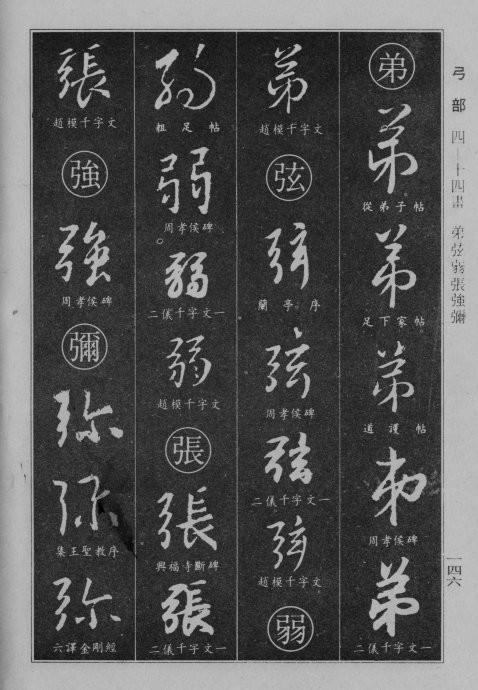 弓部 四—十四畫 弟弦弱張強彌
一四六
弟
弟
從弟子帖
弟
足下家帖
弟
道護帖
弟
周孝侯碑
弟
二儀千字文一
弟
趙模千字文
弦
弦
蘭亭序
弦
周孝侯碑
弦
二儀千字文一
弦
趙模千字文
弱
弱
粗足帖
弱
周孝侯碑
弱
二儀千字文一
弱
趙模千字文
張
張
興福寺斷碑
張
二儀千字文一
張
趙模千字文
強
強
周孝侯碑
彌
弥
弥
集王聖教序
弥
六譯金剛經